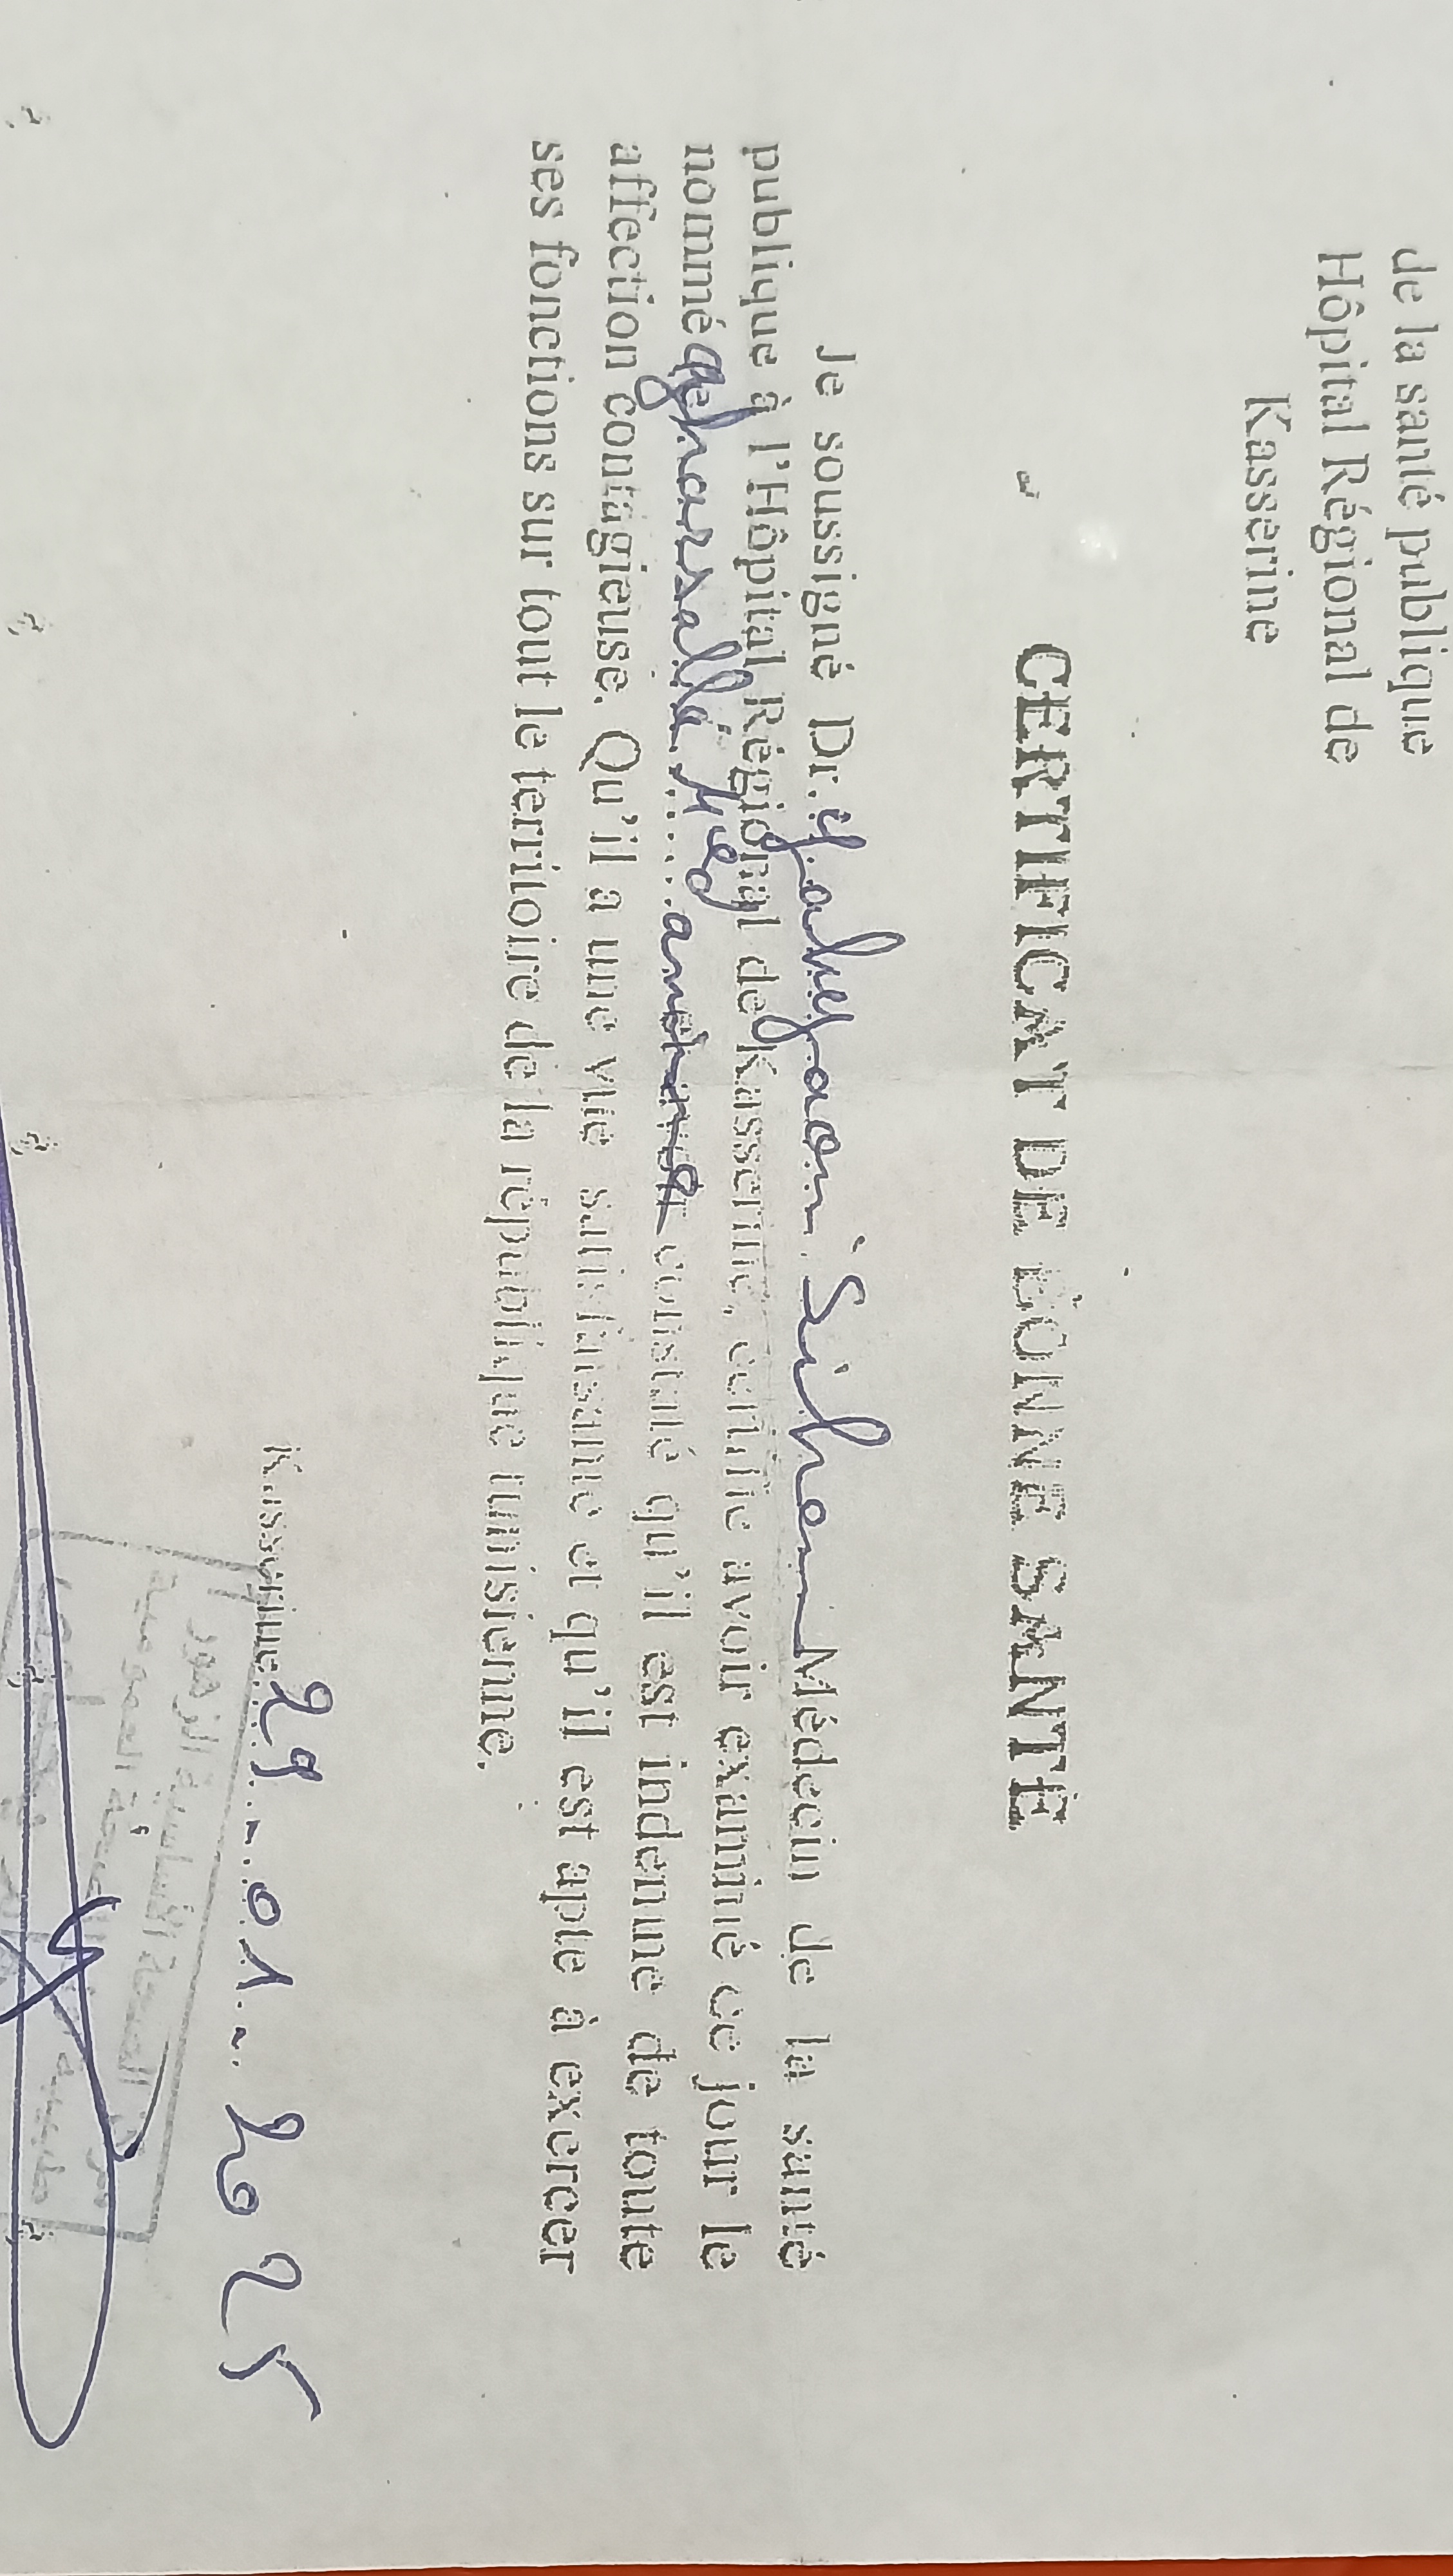 de la santé publique
Hôpital Régional de
Kasserine
CERTIFICAT DE BONNE SANTE
Je soussigné Dr. Yahyaoui Sihem Médecin de la santé
publique à l'Hôpital Régional de Kasserine, certifie avoir examiné ce jour le
nommé gharsalli Med amine constaté qu'il est indemne de toute
affection contagieuse. Qu'il a une vue satisfaisante et qu'il est apte à exercer
ses fonctions sur tout le territoire de la république tunisienne.
Kasserine 29 - 01 - 2025
الصحة الأساسية الزهور